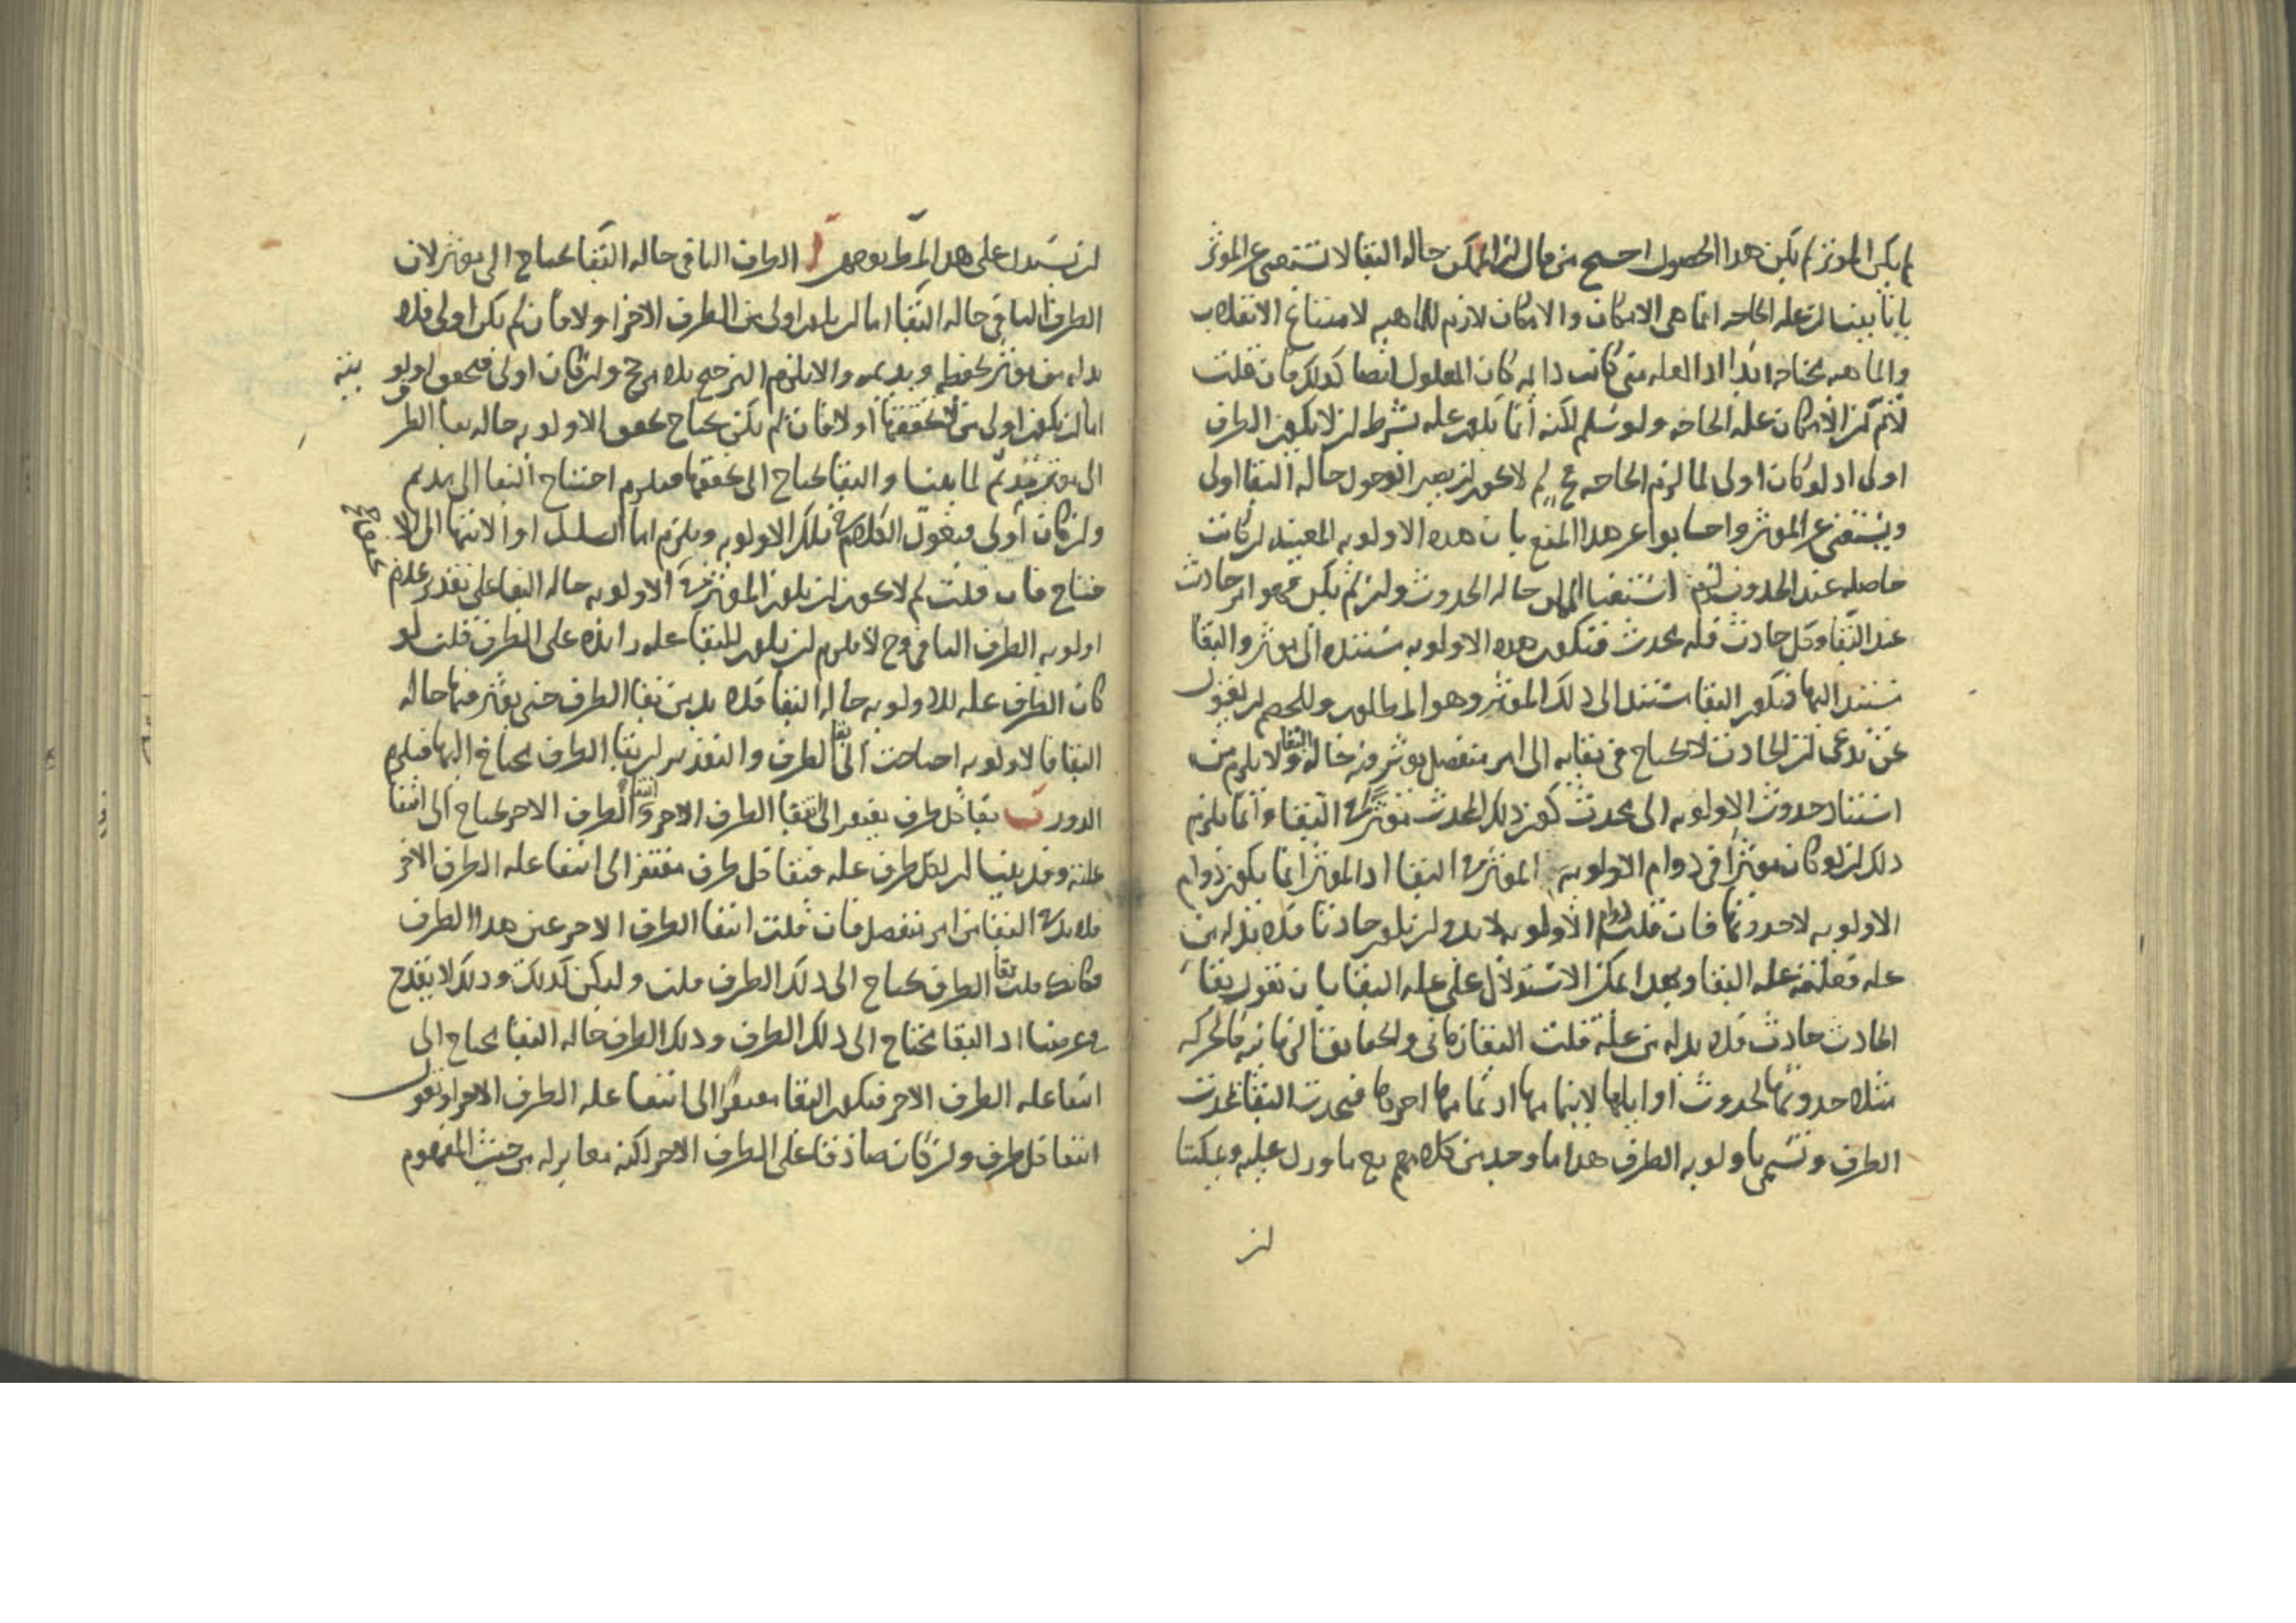 لم يكن المؤثر لم يكن هذا الحصول احتج من قال ان الممكن حاله البقا لا تستغنى عن المؤثر
بانا بينا ان عله الحاجه انما هى الامكان والامكان لازم للماهيه لامتناع الانقلاب
والماهيه محتاجه ابدا اذ العله متى كانت دايمه كان المعلول ايضا كذلك فان قلت
لانم كون الامكان عله الحاجه ولو سلم لكنه انما يكون عله بشرط ان لا يكون الطرف
اولى اذ لو كان اولى لما لزم الحاجه لم لا يجوز ان يصير الوجود حاله البقا اولى
ويستغنى عن المؤثر واجابوا عن هذا المنع بان هذه الاولويه المغنيه ان كانت
حاصله عند الحدوث لزم استغنا الممكن حاله الحدوث وان لم يكن فهو امر حادث
عند البقا وكل حادث فله محدث فتكون هذه الاولويه مستنده الى مؤثر والبقا
مستند اليها فيكون البقا مستندا الى ذلك المؤثر وهو المطلوب وللخصم ان يقول
نحن ندعى ان الحادث لا يحتاج فى بقايه الى امر منفصل يوثر فيه حاله البقا ولا يلزم من
استناد حدوث الاولويه الى محدث كون ذلك المحدث مؤثرا فى البقا وانما يلزم
ذلك ان لو كان مؤثرا فى دوام الاولويه المؤثره فى البقا اذ المؤثر انما يكون دوام
الاولويه لا حدوثها فان قلت دوام الاولويه لا بد وان يكون حادثا فلا بد له من
عله فعلته عله البقا وبهذا يمكن الاستدلال على عله البقا بان نقول بقا
الحادث حادث فلا بد له من علة قلت البقا زمانى
الطرف ونسمى باولويه الطرف هذا ما وجد من كلامهم مع ما ورد عليه ويمكننا
ان
ان نستدل على هذا المط بوجوه ا الطرف الباقى حاله البقا يحتاج الى مؤثر لان
الطرف الباقى حاله البقا اما ان يكون اولى من الطرف الاخر او لا فان لم يكن اولى فلا
بد له من مؤثر يحفظه ويديمه والا يلزم الترجيح بلا مرجح وان كان اولى فتحقق اولو يته
اما ان يكون اولى من لا تحققها او لا فان لم يكن يحتاج تحقق الاولويه حاله بقا الطرف
الى مؤثر يديم لما بينا والبقا يحتاج الى تحققها فيلزم احتياج البقا الى مديم
وان كان اولى فنقول الكلام فى تلك الاولويه ويلزم اما التسلسل او الانتها الى الا
حتياج فان قلت لم لا يجوز ان يكون المؤثر فى الاولويه حاله البقا على تقدير عدم تحققها ح
اولويه الطرف الباقى وح لا يلزم ان يكون للبقا عله زايده على الطرف قلت لو
كان الطرف عله للاولويه حاله البقا فلا بد من بقا الطرف حتى يؤثر فيها حاله
البقا فالاولويه احتاجت الى بقا الطرف والتقدير ان بقا الطرف يحتاج اليها فيلزم
الدور ب بقا كل طرف يفتقر الى انتفا الطرف الاخر وانتفا الطرف الاخر يحتاج الى انتفا
علته وقد بينا ان لكل طرف عله فبقا كل طرف مفتقر الى انتفا عله الطرف الاخر
فلا بد فى البقا من امر منفصل فان قلت انتفا الطرف الاخر عين هذا الطرف
فكانك قلت بقا الطرف يحتاج الى ذلك الطرف قلت وليكن كذلك وذلك لا يقدح
فى غرضنا اذ البقا يحتاج الى ذلك الطرف وذلك الطرف حاله البقا يحتاج الى
انتفا عله الطرف الاخر فيكون البقا مفتقرا الى انتفا عله الطرف الاخر او نقول
انتفا كل طرف وان كان صادقا على الطرف الاخر لكنه مغاير له من حيث المفهوم